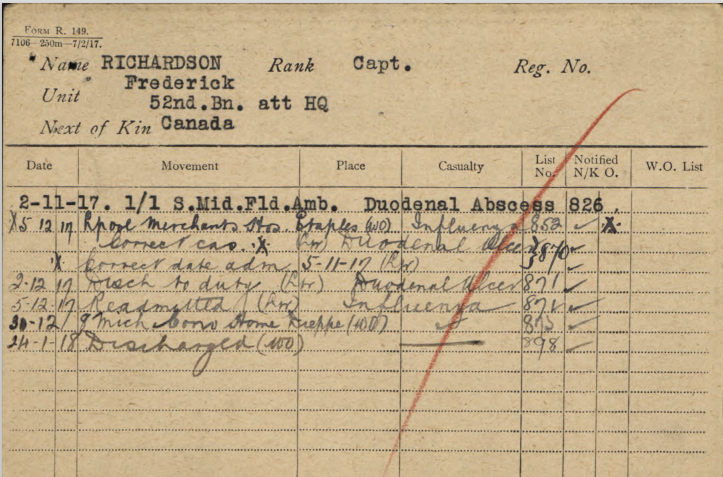 FORM R. 149.
7106—250m—7/2/17.
Name RICHARDSON Rank Capt. Reg. No.
Frederick
Unit 52nd.Bn. att HQ
Next of Kin Canada
Date Movement Place Casualty List No. Notified N/K O. W.O. List
2-11-17. 1/1 S.Mid.Fld.Amb. Duodenal Abscess 826.
X5 12 17 Lpool Merchants Hos. Etaples (WO) Influenza 852 ✓ X.
Correct cas. X. (hr) Duodenal Ulcer
X Correct date adm. 5-11-17 (hr) 870 ✓
2-12-17 Disch to duty (hr) Duodenal Ulcer 871 ✓
5-12-17 Readmitted (hr) Influenza 871 ✓
30-12-17 Mich Conv Home Dieppe (WO) ✓ 873 ✓
24-1-18 Discharged (WO) — 898 ✓